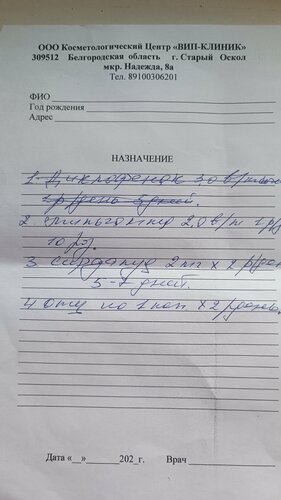 ООО Косметологический Центр «ВИП-КЛИНИК»
309512 Белгородская область г. Старый Оскол
мкр. Надежда, 8а
Тел. 89100306201
ФИО
Год рождения
Адрес
НАЗНАЧЕНИЕ
1. Диклофенак 3.0 в/м
1 р/день 3 дней.
2. 2,0 в/м 1 р/
10
3. сирдалуд 2 × 2 р/дн
5-7 дней.
4. по 1 кап × 2 р/день.
Дата «__»______202_г. Врач